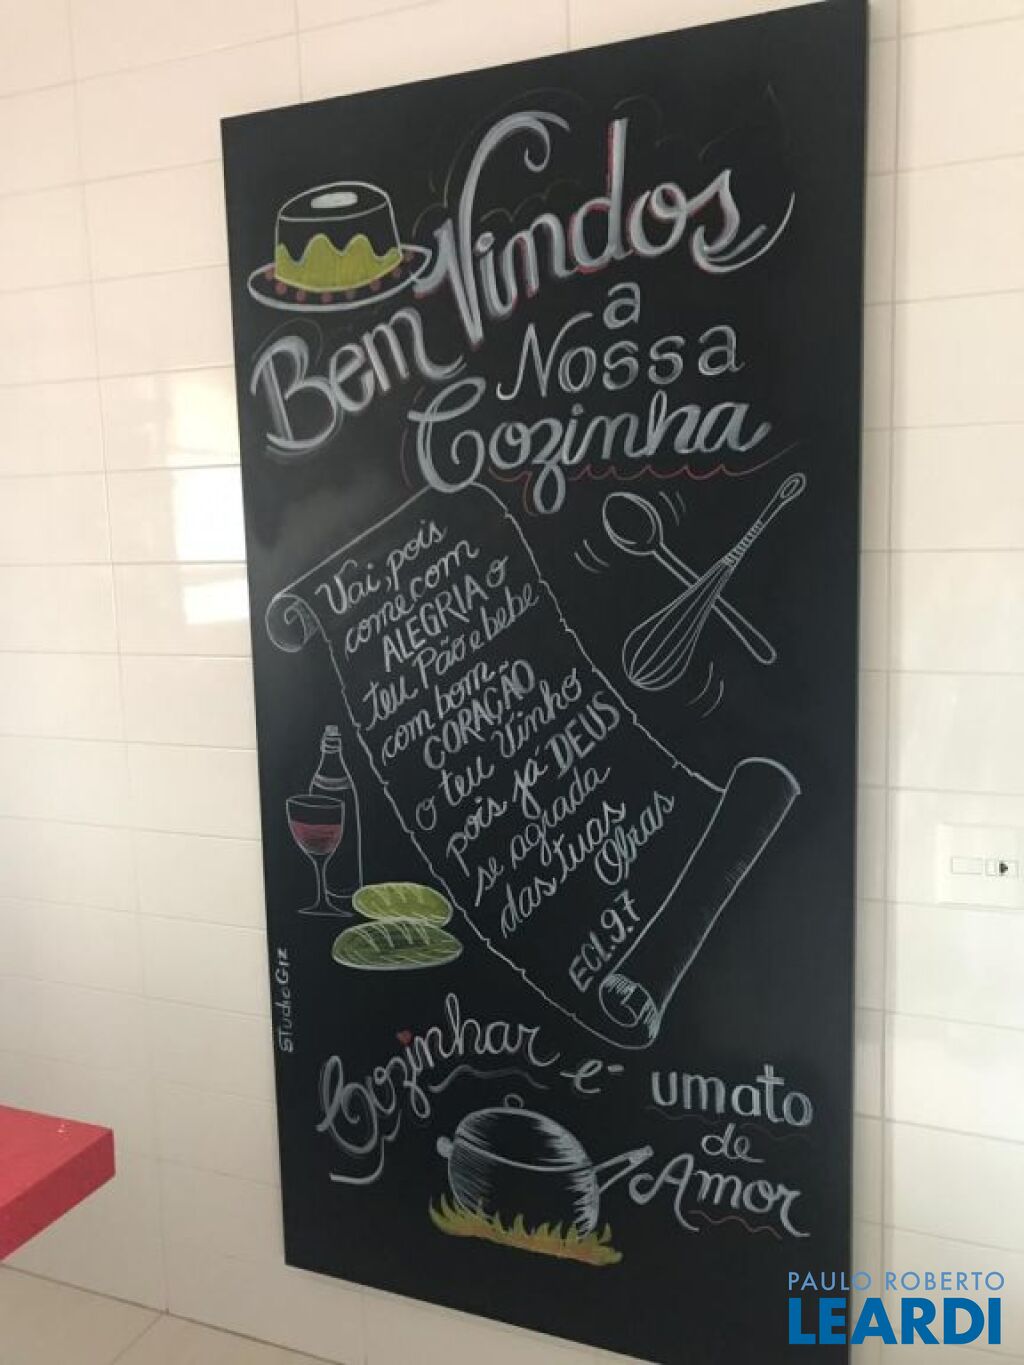 Bem Vindos
a
Nossa
Cozinha
Vai, pois
come com
ALEGRIA o
teu Pão e bebe
com bom
CORAÇÃO
o teu Vinho
pois já DEUS
se agrada
das tuas
Obras
ECL.9.7
STudio Giz
Cozinhar é um ato
de
Amor
PAULO ROBERTO
LEARDI